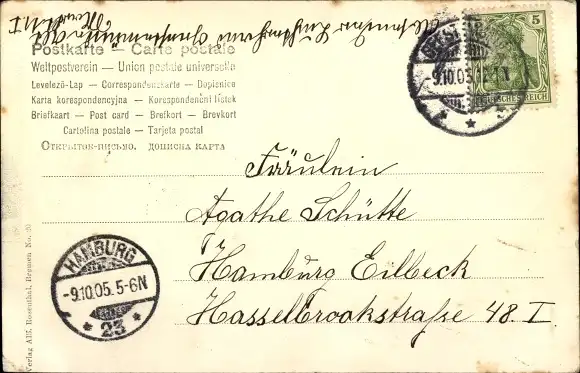 Postkarte — Carte postale
Weltpostverein — Union postale universelle
Levelező-Lap — Correspondenzkarte — Dopisnice
Karta korespondencyjna — Korespondenční lístek
Briefkaart — Post card — Brefkort — Brevkort
Cartolina postale — Tarjeta postal
Открытое-письмо, дописна карта
5
DEUTSCHES REICH
-9.10.05
Fräulein
Agathe Schütte
Hamburg Eilbeck
Hasselbrookstraße 48. I.
HAMBURG
-9.10.05. 5-6N
* 23 *
Verlag Alb. Rosenthal, Bremen No. 20